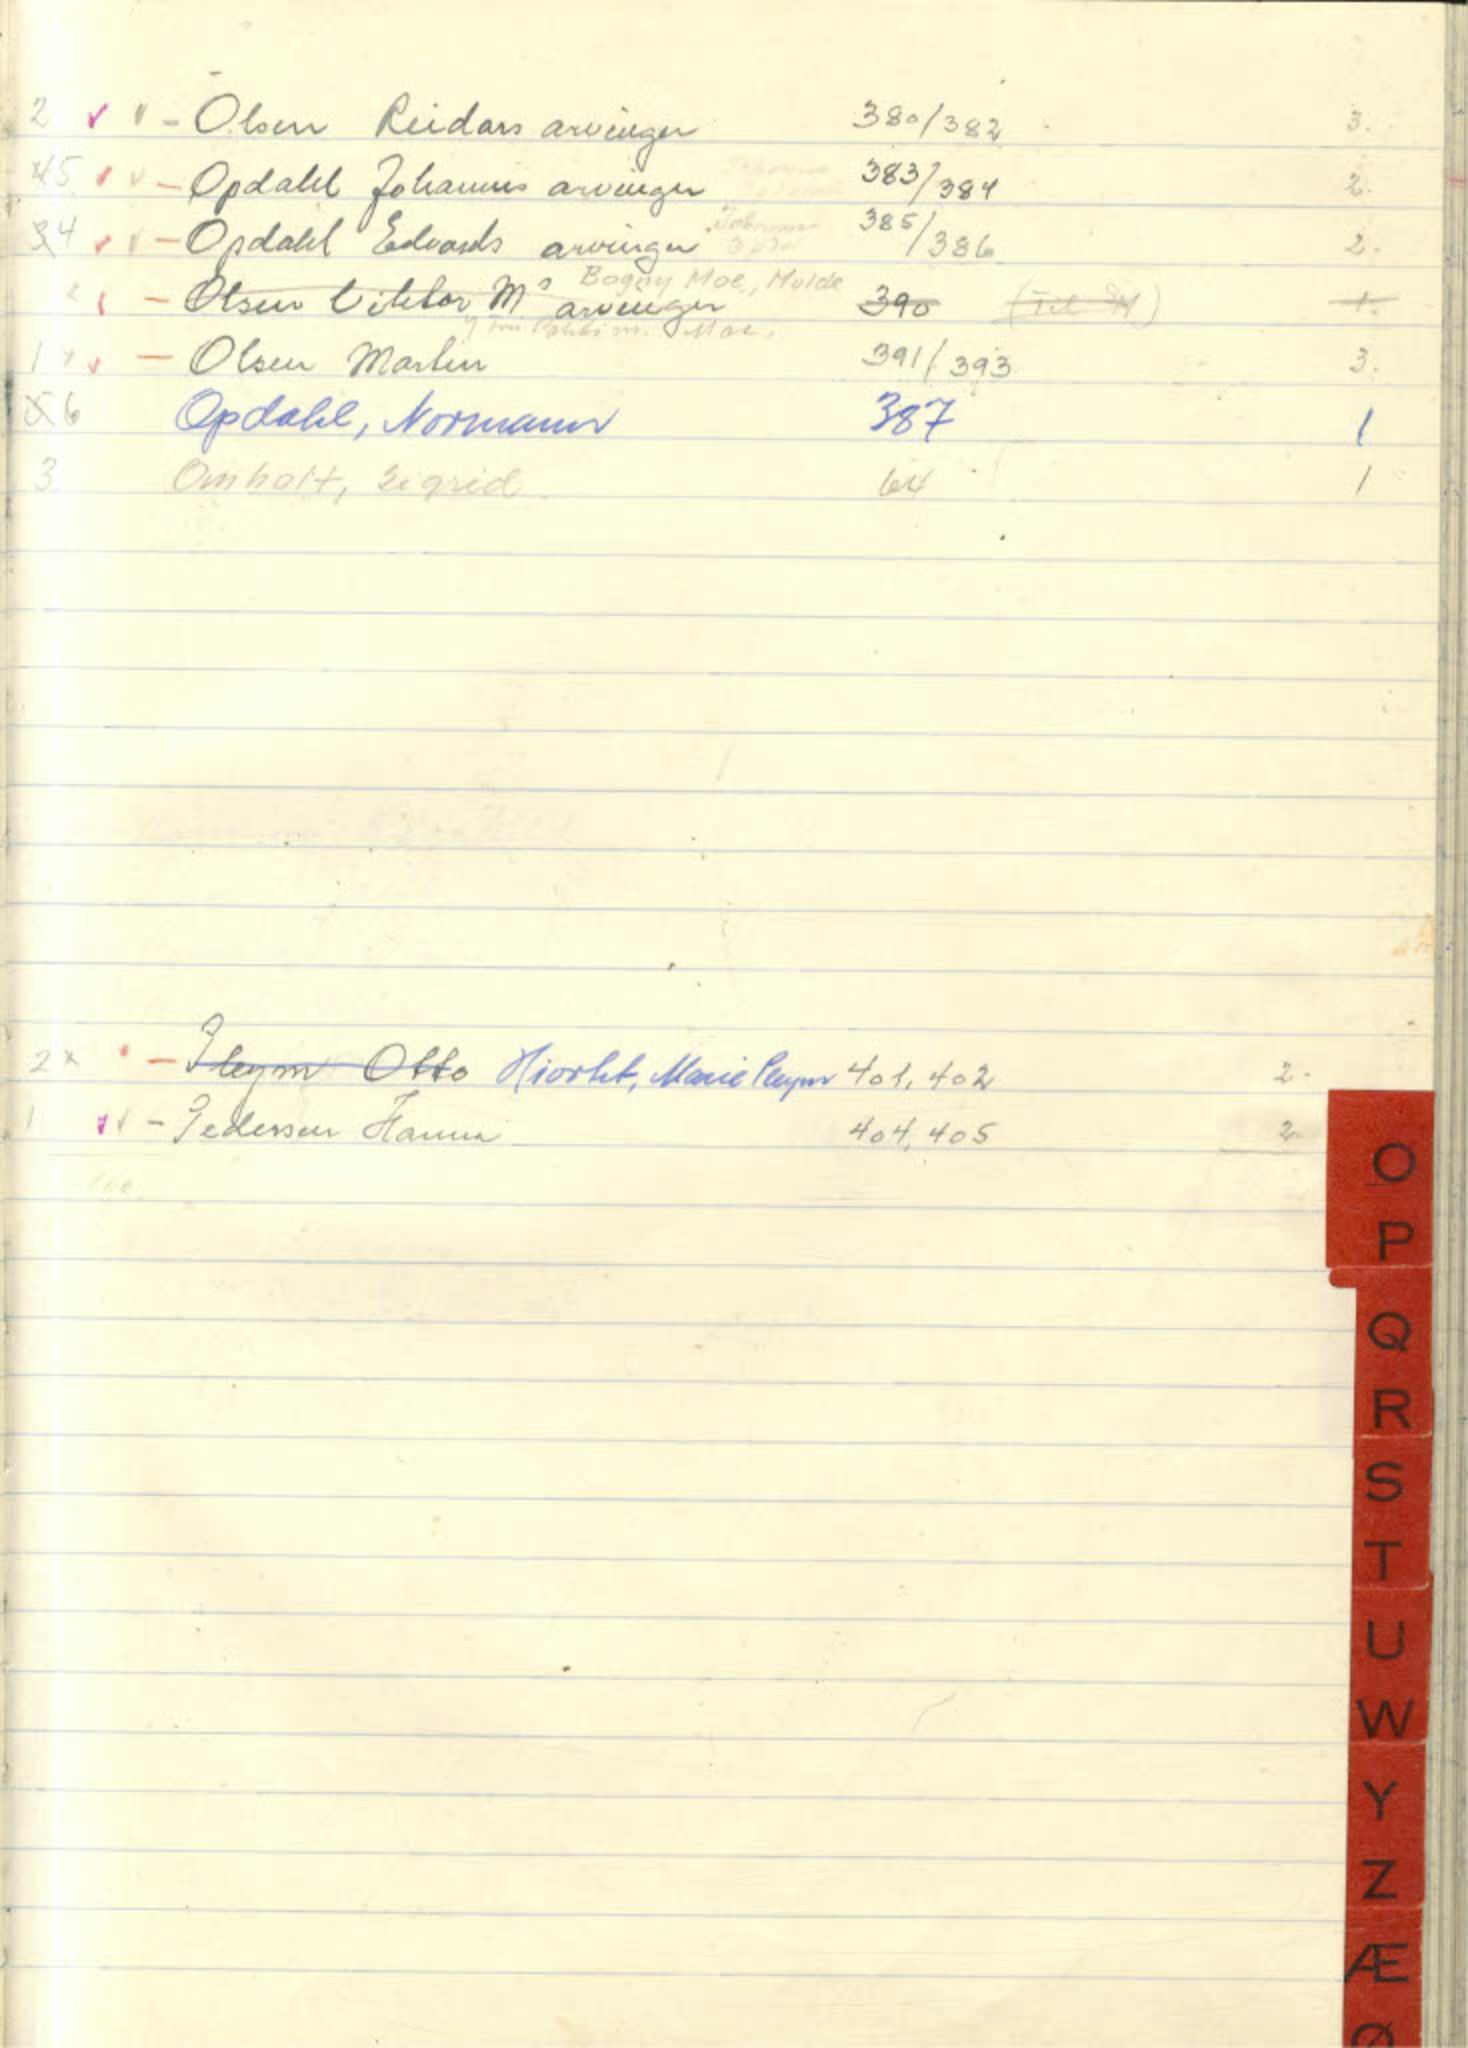 2 ✓ v - Olsen Reidars arvinger 380/382 3.
5 ✓ v - Opdahl Johannes arvinger 383/384 2.
4 ✓ v - Opdahl Edvards arvinger 385/386 2.
Bogny Moe, Molde
- Olsen Viktor Ms arvinger 390 (Til M) 1.
Moe.
1 ✓ - Olsen Martin 391/393 3.
6 Opdahl, Normann 387 1
3 Omholt, Sigrid 64 1
2 x - Pleym Otto Hiorth, Marie Pleym 401, 402 2.
1 ✓ v - Pedersen Hanna 404, 405 2
O
P
Q
R
S
T
U
W
Y
Z
Æ
Ø